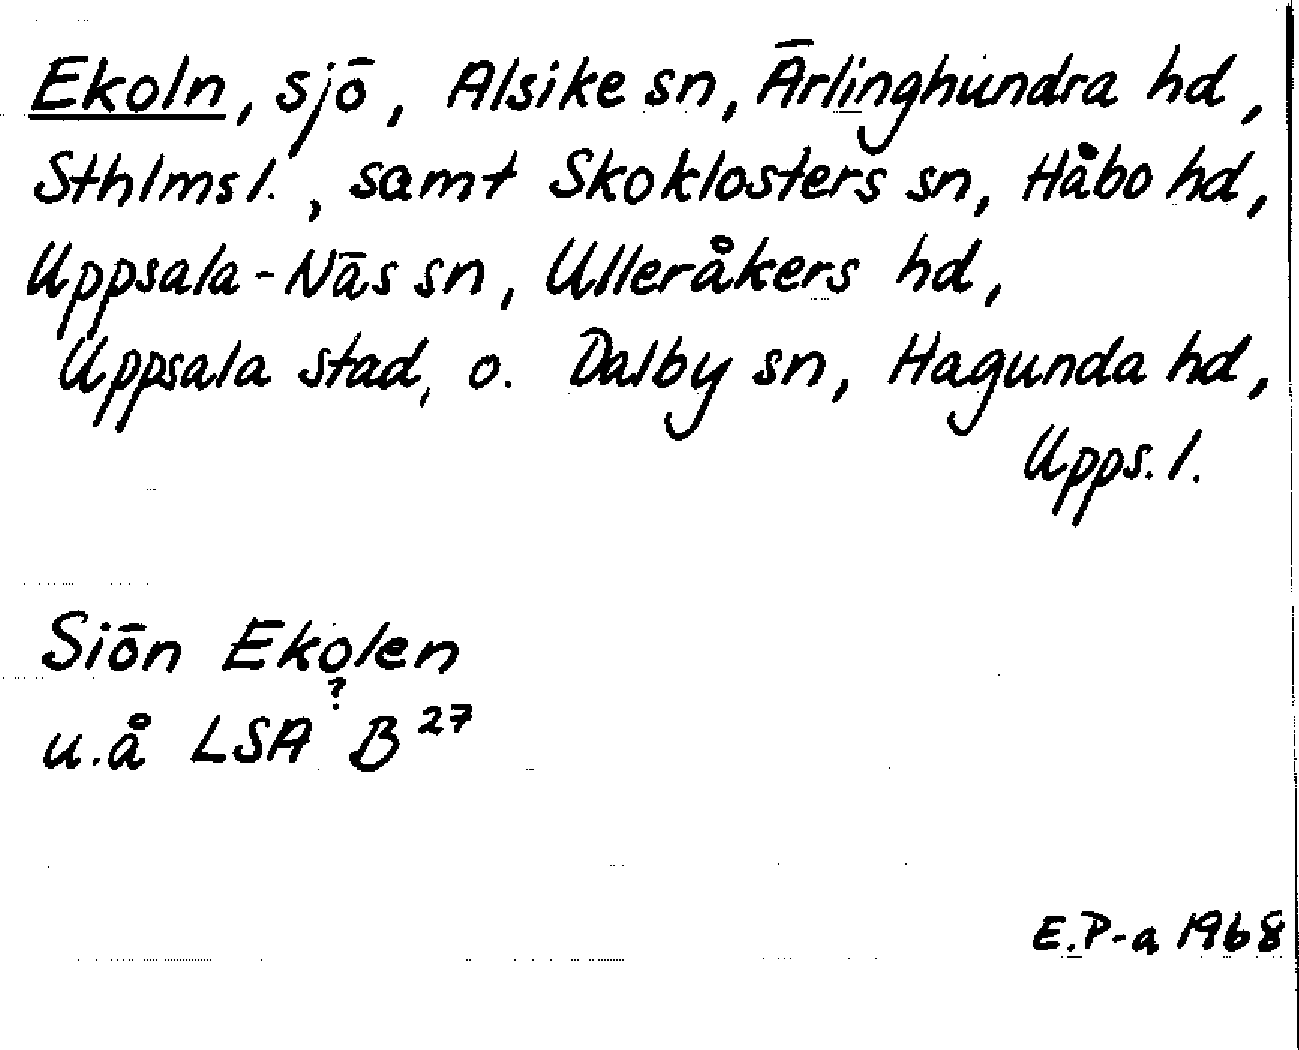 Ekoln, sjö, Alsike sn, Ärlinghundra hd,
Sthlms l., samt Skoklosters sn, Håbo hd,
Uppsala-Näs sn, Ulleråkers hd,
Uppsala stad, o. Dalby sn, Hagunda hd,
Upps. l.
Siön Ekolen
?
u.å LSA B 27
E.P-a 1968